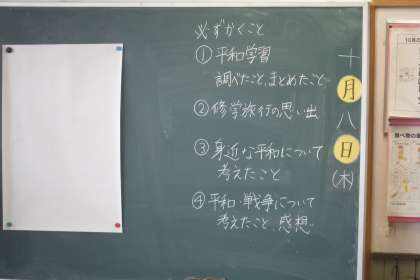 必ずかくこと
① 平和学習
調べたこと、まとめたこと
② 修学旅行の思い出
③ 身近な平和について
考えたこと
④ 平和・戦争について
考えたこと、感想
十月八日(木)